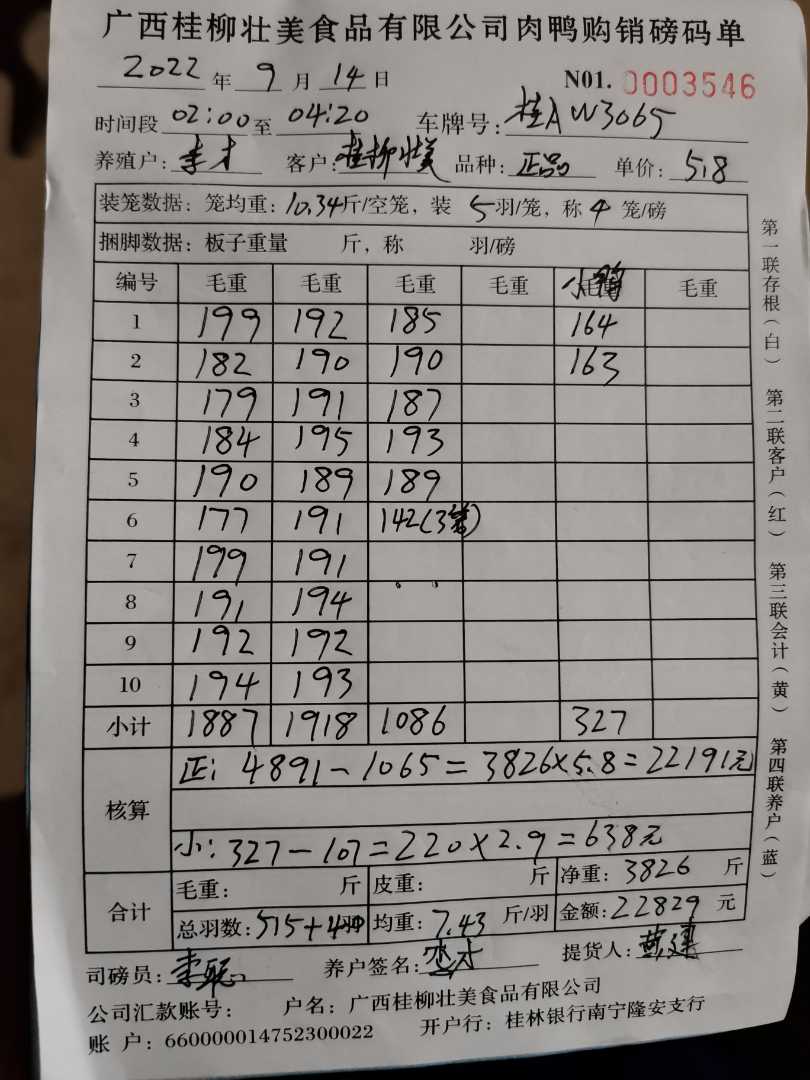 广西桂柳壮美食品有限公司肉鸭购销磅码单
2022 年 9 月 14 日 N01. 0003546
时间段 02:00 至 04:20 车牌号: 桂A W3065
养殖户: 李才 客户: 桂柳壮美 品种: 正品 单价: 5.8
装笼数据: 笼均重: 10.34斤/空笼, 装 5羽/笼, 称4 笼/磅
捆脚数据: 板子重量 斤, 称 羽/磅
编号 毛重 毛重 毛重 毛重 小鸭 毛重
1 199 192 185 164
2 182 190 190 163
3 179 191 187
4 184 195 193
5 190 189 189
6 177 191 142(3笼)
7 199 191
8 191 194
9 192 192
10 194 193
小计 1887 1918 1086 327
核算 正: 4891-1065=3826×5.8=22191元
小: 327-107=220×2.9=638元
合计 毛重: 斤 皮重: 斤 净重: 3826 斤
总羽数: 515+44 均重: 7.43 斤/羽 金额: 22829 元
司磅员: 李聪 养户签名: 提货人: 黄建
公司汇款账号: 户名: 广西桂柳壮美食品有限公司
账 户: 660000014752300022 开户行: 桂林银行南宁隆安支行
第一联存根(白) 第二联客户(红) 第三联会计(黄) 第四联养户(蓝)